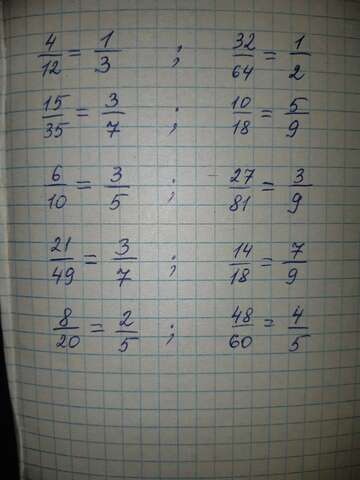 4/12 = 1/3 ; 32/64 = 1/2
15/35 = 3/7 ; 10/18 = 5/9
6/10 = 3/5 ; 27/81 = 3/9
21/49 = 3/7 ; 14/18 = 7/9
8/20 = 2/5 ; 48/60 = 4/5